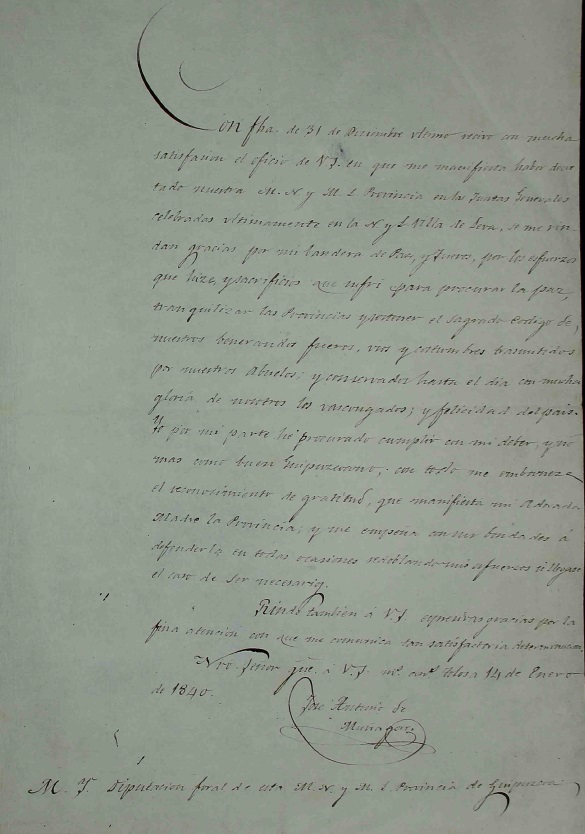 Con fha. de 31 de Diciembre ultimo recivo con mucha
satisfacion el oficio de V.I. en que me manifiesta haber decre
tado nuestra M. N y M. L Provincia en la Juntas Generales
celebradas ultimamente en la N y L Villa de Deva, se me rin
dan gracias por mi bandera de Paz, y Fueros, por los esfuerzos
que hize, y sacrificios que sufri para procurar la paz,
tranquilizar las Provincias y sostener el sagrado Codigo de
nuestros benerandos fueros, usos y costumbres trasmitidos
por nuestros Abuelos; y conservados hasta el dia con mucha
gloria de nosotros los vascongados; y felicidad del pais.
Yo por mi parte hé procurado cumplir con mi deber, y no
mas como buen Guipuzcoano; con todo me embaraza
el reconocimiento de gratitud, que manifiesta mi Adorada
Madre la Provincia; y me empeña con sus bondades á
defenderla en todas ocasiones redoblando mis esfuerzos si llegase
el caso de ser necesario.
Rindo tambien á V.I. espresivas gracias por la
fina atencion con que me comunica tan satisfactoria determinacion.
Nro. Señor gue. á V.I. ms. ans. Tolosa 14 de Enero
de 1840.
José Antonio de
Muñagorri
M. I. Diputacion foral de esta M. N. y M. L Provincia de Guipuzcoa